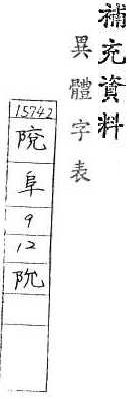 補充資料
異體字表
15742
阜
9
12
阭